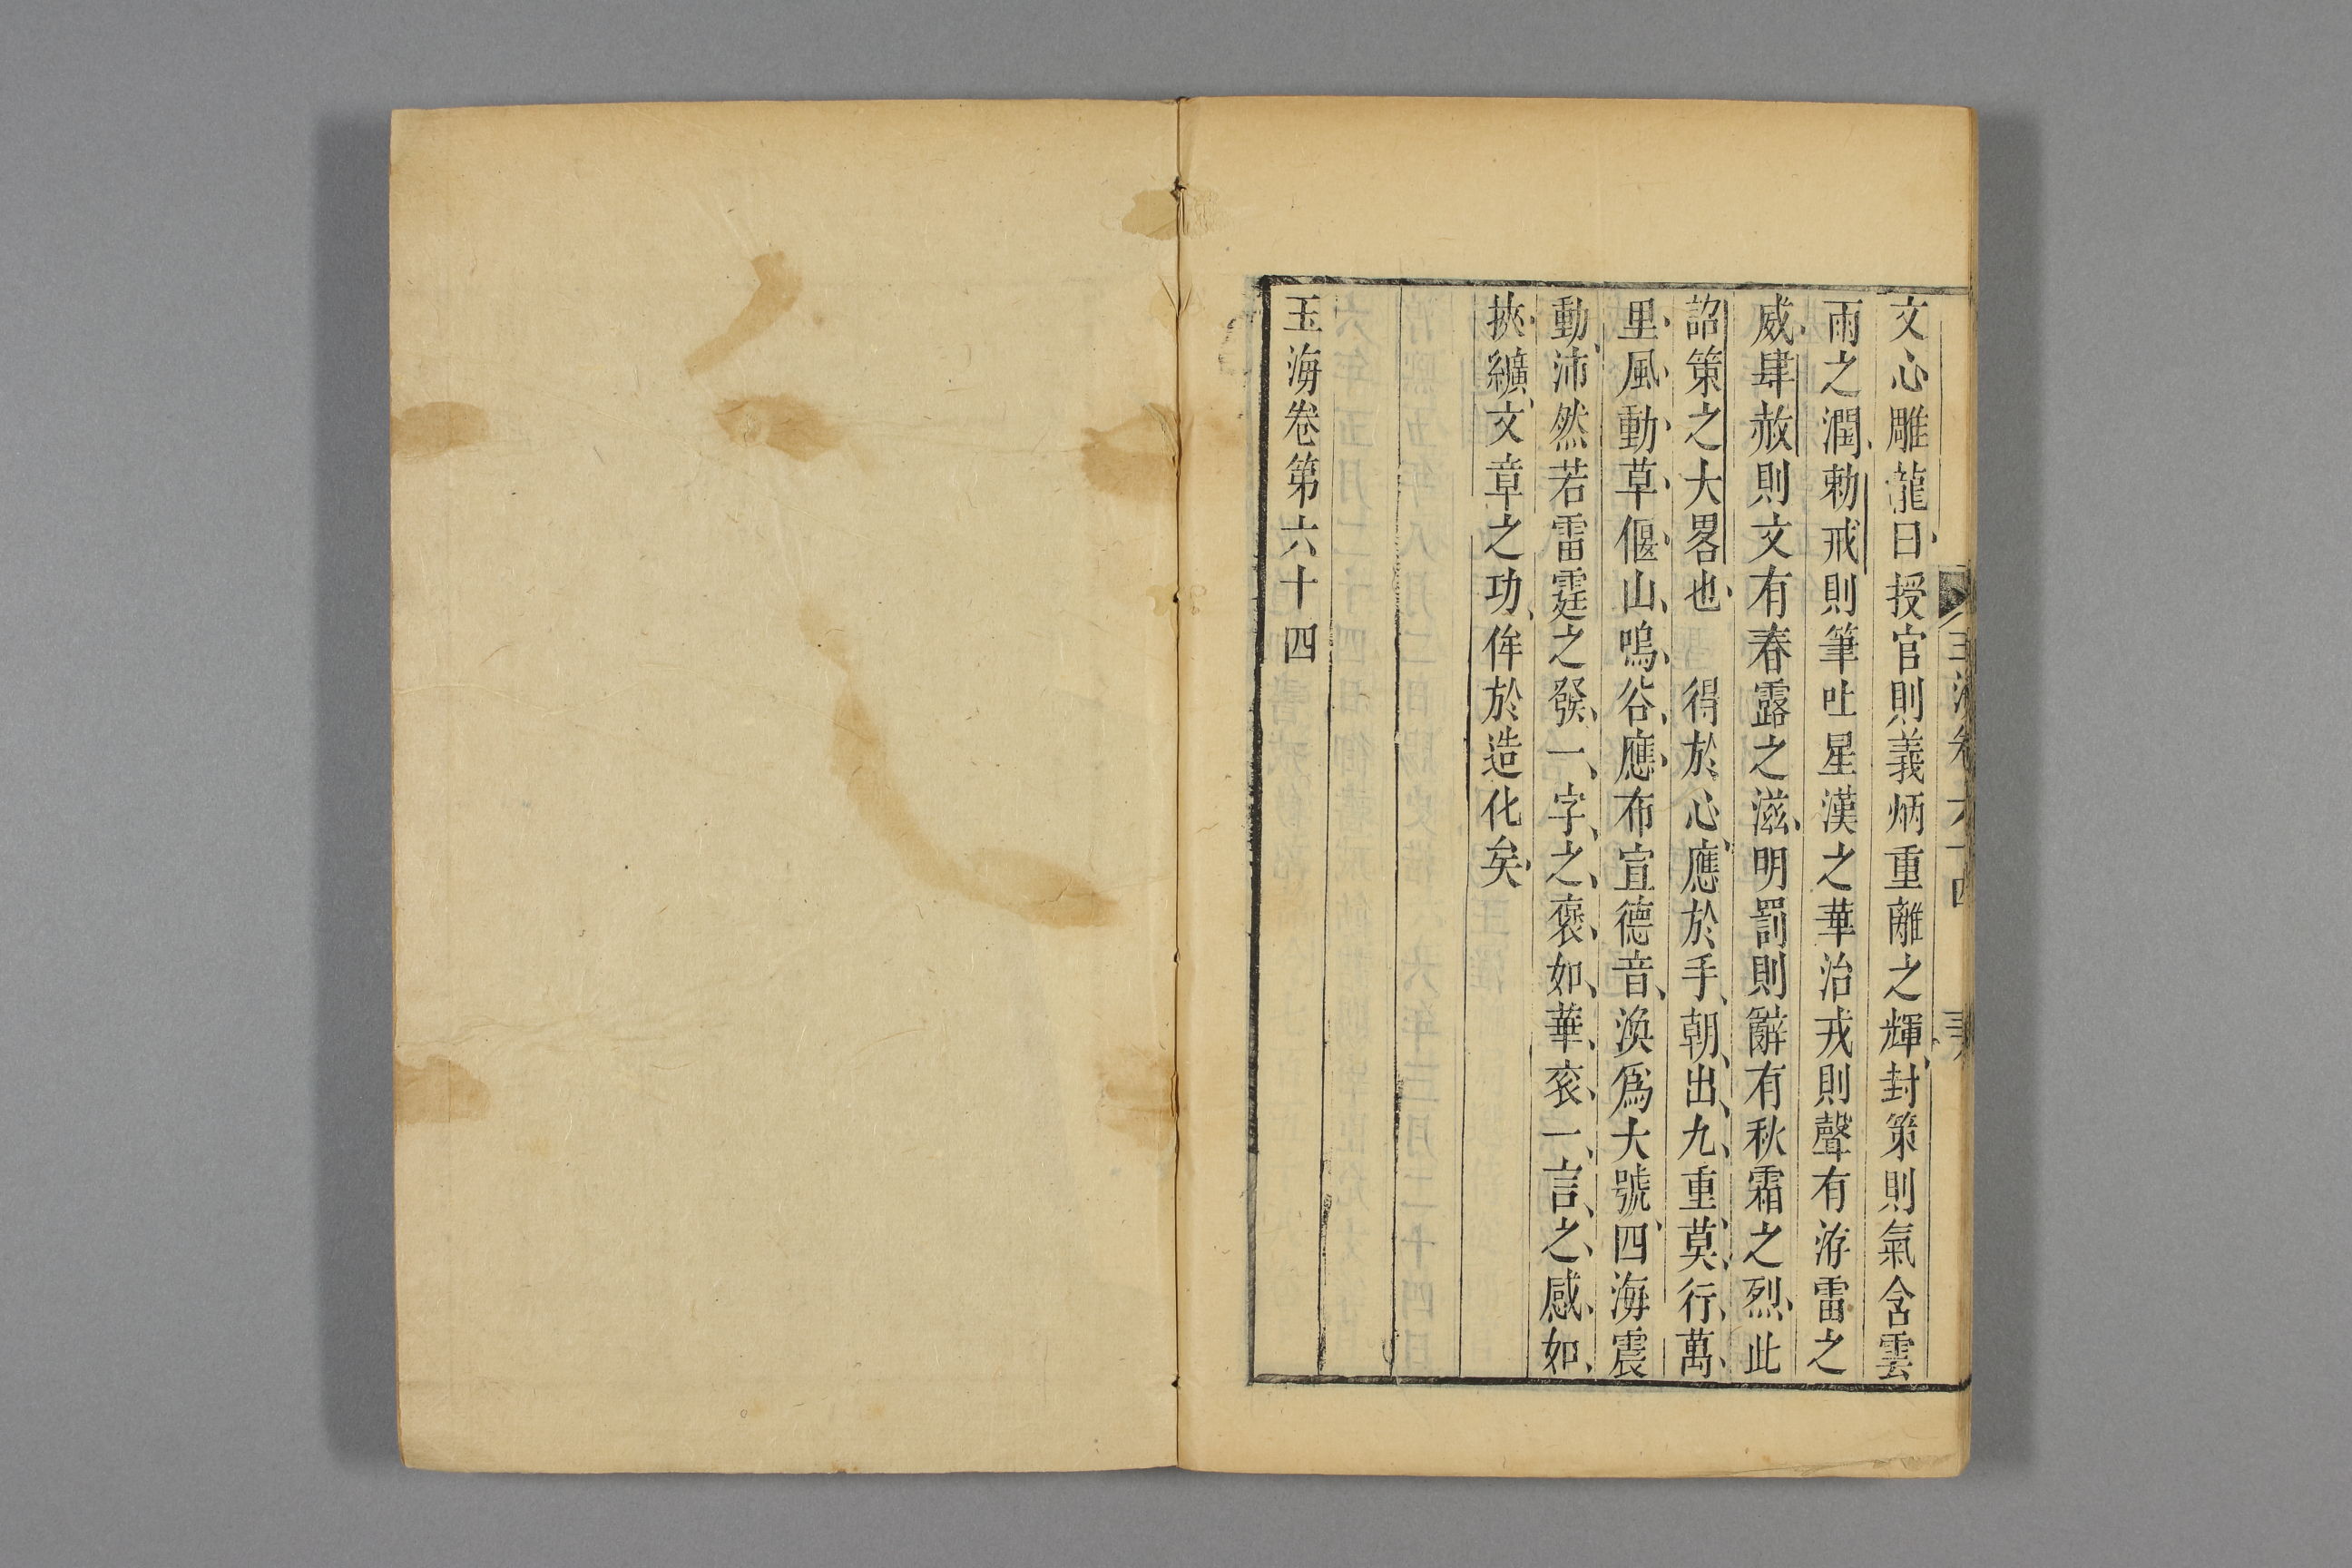 文心雕龍曰授官則義炳重離之輝封策則氣含雲
雨之潤勅戒則筆吐星漢之華治戎則聲有洊雷之
威肆赦則文有春露之滋明罰則辭有秋霜之烈此
詔策之大畧也 得於心應於手朝出九重莫行萬
里風動草偃山鳴谷應布宣德音渙爲大號四海震
動沛然若雷霆之發一字之褒如華衮一言之感如
挾纊文章之功侔於造化矣
玉海卷第六十四